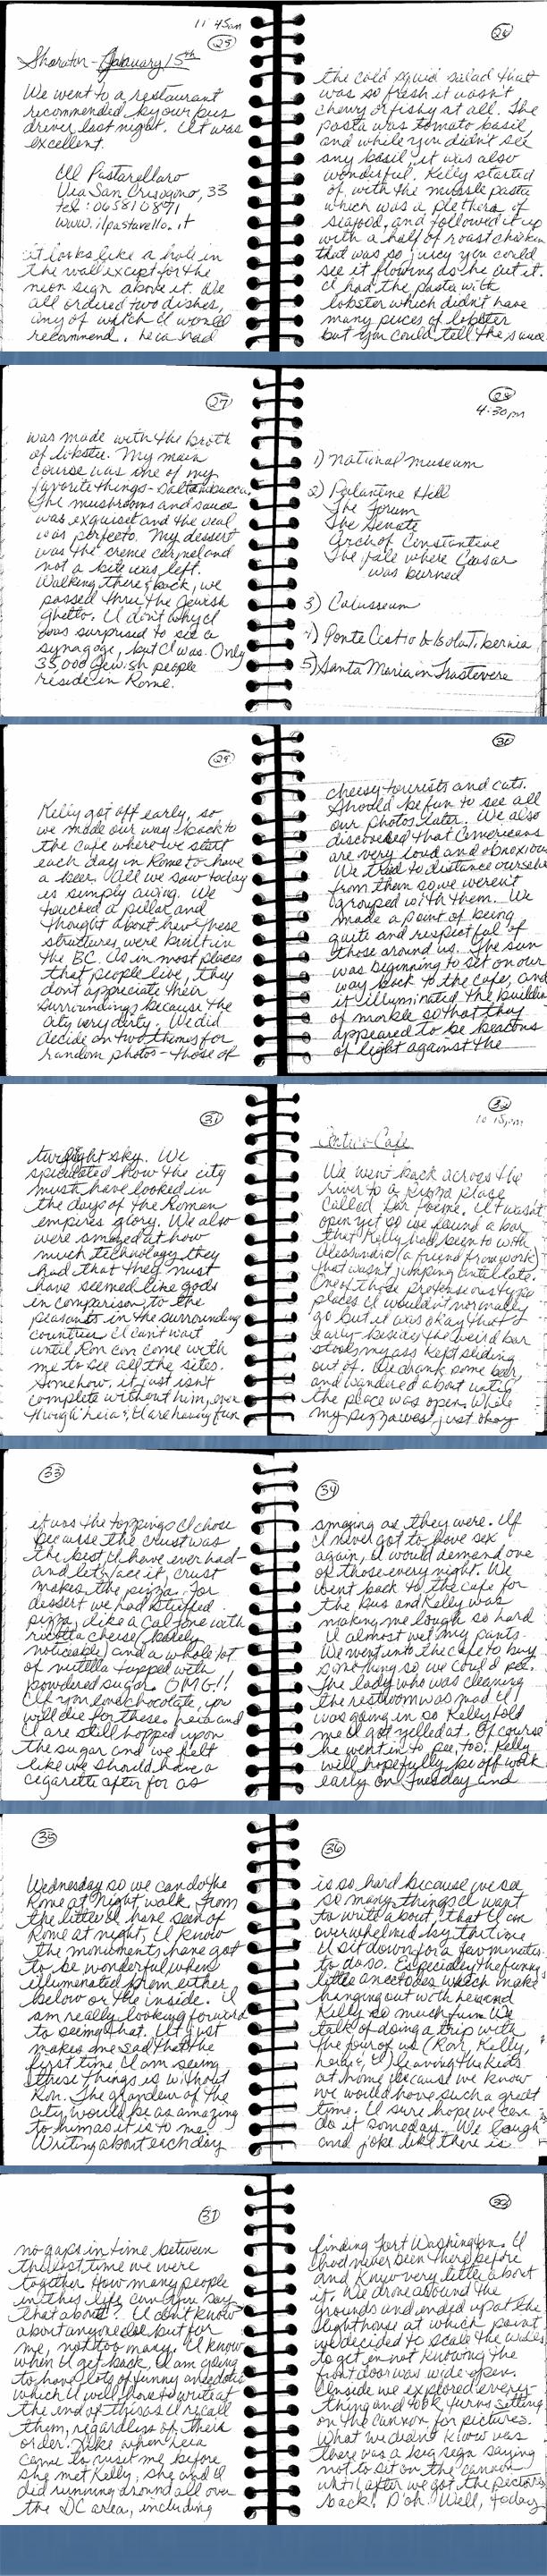 11:45am
25
Sheraton - January 15th
We went to a restaurant
recommended by our bus
driver last night. It was
excellent.
Il Pastarellaro
Via San Crisogono, 33
tel: 065810871
www.ilpastarello.it
it looks like a hole in
the wall except for the
neon sign above it. We
all ordered two dishes,
any of which I would
recommend. heia had
26
the cold squid salad that
was so fresh it wasn't
chewy or fishy at all. The
pasta was tomato basil,
and while you didn't see
any basil, it was also
wonderful. Kelly started
of with the mussle pasta
which was a plethera of
seafood, and followed it up
with a half of roast chicken
that was so juicy you could
see it flowing as he cut it.
I had the pasta with
lobster which didn't have
many pieces of lobster
but you could tell the sauce
27
was made with the broth
of lobster. My main
course was one of my
favorite things - Saltambucca.
The mushrooms and sauce
was exquiset and the veal
was perfecto. My dessert
was the creme carmel and
not a bite was left.
Walking there & back, we
passed thru the Jewish
Ghetto. I don't why I
was surprised to see a
synagoge, but I was. Only
35,000 Jewish people
reside in Rome.
28
4:30pm
1) National Museum
2) Palantine Hill
The Forum
The Senate
Arch of Constantine
The place where Caesar
was burned
3) Colusseum
4) Ponte Cistio & Isola Tibernia
5) Santa Maria in Trastevere
29
Kelly got off early, so
we made our way back to
the cafe where we start
each day in Rome to have
a beer. All we saw today
is simply awing. We
touched a pillar and
thought about how these
structures were built in
the BC. As in most places
that people live, they
don't appreciate their
surroundings because the
city very dirty. We did
decide on two themes for
random photos - those of
30
cheesy tourists and cats.
Should be fun to see all
our photos later. We also
discovered that Americans
are very loud and obnoxious
We tried to distance ourselves
from them so we weren't
grouped with them. We
made a point of being
quite and respectful of
those around us. The sun
was beginning to set on our
way back to the cafe, and
it illuminated the buildings
of marble so that they
appeared to be beacons
of light against the
31
twilight sky. We
speculated how the city
must have looked in
the days of the Roman
empires glory. We also
were amazed at how
much technology they
had that they must
have seemed like gods
in comparison to the
peasants in the surrounding
countries. I can't wait
until Ron can come with
me to see all the sites.
Somehow, it just isn't
complete without him, even
though heia & I are having fun
32
10:15pm
Cafe
We went back across the
river to a pizza place
called Dar Poeme. It wasn't
open yet so we found a bar
that Kelly had been to with
Alessandro (a friend from work)
that wasn't jumping until late.
One of those pretensious type
places I wouldn't normally
go but it was okay that
early - besides the weird bar
stools my ass kept sliding
out of. We drank some beer,
and wandered about until
the place was open. While
my pizza was just okay
33
it was the toppings I chose
because the crust was
the best I have ever had -
and let's face it, crust
makes the pizza. For
dessert we had stuffed
pizza, like a Calzone with
ricotta cheese (barely
noticeable) and a whole lot
of nutella topped with
powdered sugar. OMG!!
If you love chocolate, you
will die for these. heia and
I are still hopped upon
the sugar and we felt
like we should have a
cegarette after for as
34
amazing as they were. If
I never got to have sex
again, I would demand one
of those every night. We
went back to the cafe for
the bus and Kelly was
making me laugh so hard
I almost wet my pants.
We went into the cafe to buy
something so we could pee.
The lady who was cleaning
the restroom was mad I
was going in so Kelly told
me I got yelled at. Of course
he went in to pee, too. Kelly
will hopefully be off work
early on Tuesday and
35
Wednesday so we can do the
Rome at Night walk. From
the little I have seen of
Rome at night, I know
the monuments have got
to be wonderful when
illumenated from either
below or the inside. I
am really looking forward
to seeing that. It just
makes me sad that the
first time I am seeing
these things is without
Ron. The grandeur of the
city would be as amazing
to him as it is to me.
Writing about each day
36
is so hard because we see
so many things I want
to write about, that I am
overwhelmed by the time
I sit down for a few minutes
to do so. Especially the funny
little anectodes which make
hanging out with heia and
Kelly so much fun. We
talk of doing a trip with
the four of us (Ron, Kelly,
heia & I) leaving the kids
at home because we know
we would have such a great
time. I sure hope we can
do it someday. We laugh
and joke like there is
37
no gaps in time between
the last time we were
together. How many people
in this life can you say
that about? I don't know
about anyone else but for
me, not too many. I know
when I get back, I am going
to have lots of funny anecdotes
which I will have to write at
the end of this as I recall
them, regardless of their
order. Like when heia
came to visit me before
she met Kelly, she and I
did running around all over
the DC area, including
38
finding Fort Washington. I
had never been there before
and knew very little about
it. We drove around the
grounds and ended up at the
lighthouse at which point
we decided to scale the walls
to get in not knowing the
front door was wide open.
Inside we explored every-
thing and took turns sitting
on the cannon for pictures.
What we didn't know was
there was a big sign saying
not to sit on the cannon
until after we got the pictures
back! D'oh! Well, today